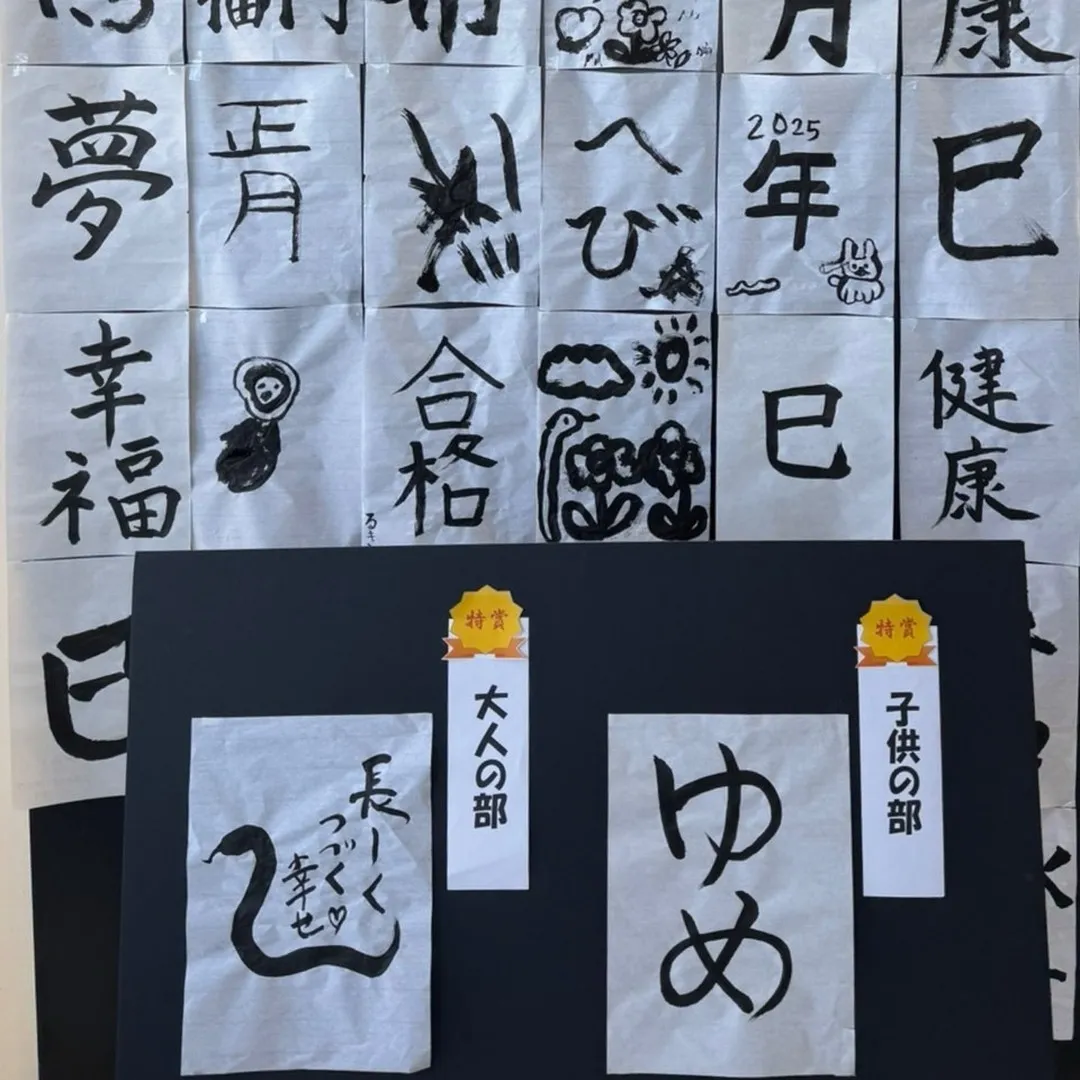 福
月
康
夢
正月
へび
2025
年
巳
幸福
合格
るき
巳
健康
巳
特賞
大人の部
長ーく
つづく
幸せ♡
特賞
子供の部
ゆめ